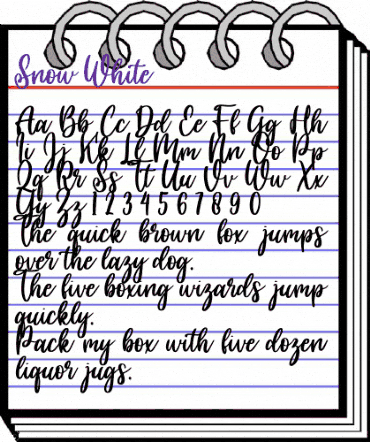 Snow White
Aa Bb Cc Dd Ee Ff Gg Hh
Ii Jj Kk Ll Mm Nn Oo Pp
Qq Rr Ss Tt Uu Vv Ww Xx
Yy Zz 1 2 3 4 5 6 7 8 9 0
The quick brown fox jumps
over the lazy dog.
The five boxing wizards jump
quickly.
Pack my box with five dozen
liquor jugs.